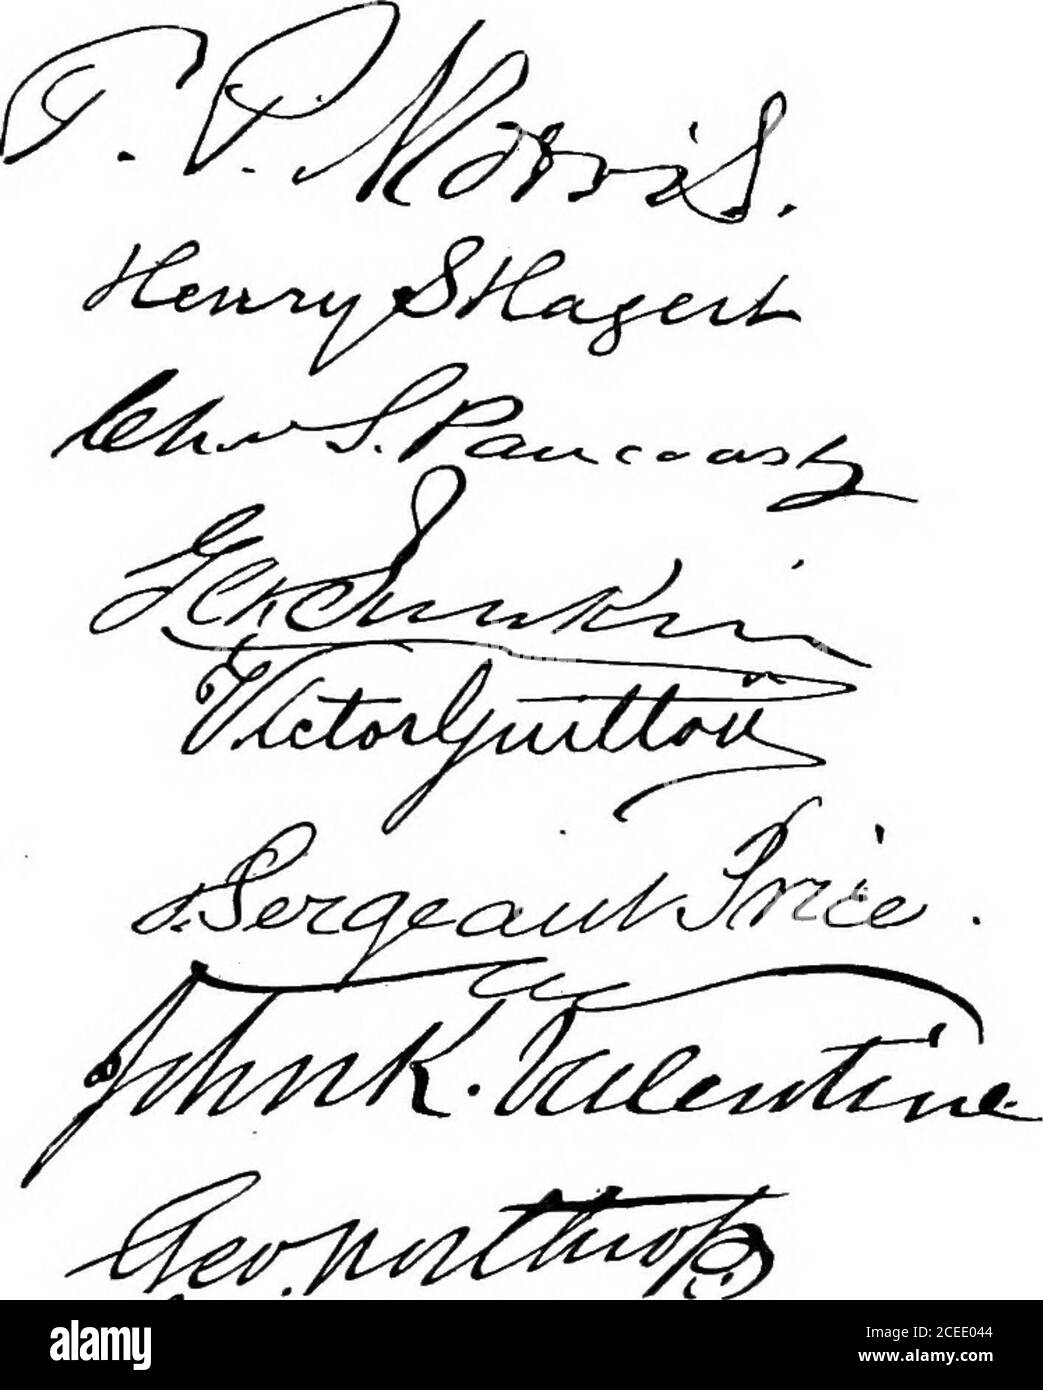 P. P. Morris.
Henry S Hagert
Chas S. Pancoast
Victor Guillou
J. Sergeant Price.
John K. Valentine
Geo. Northrop
alamy
Image ID: 2CEE044
www.alamy.com